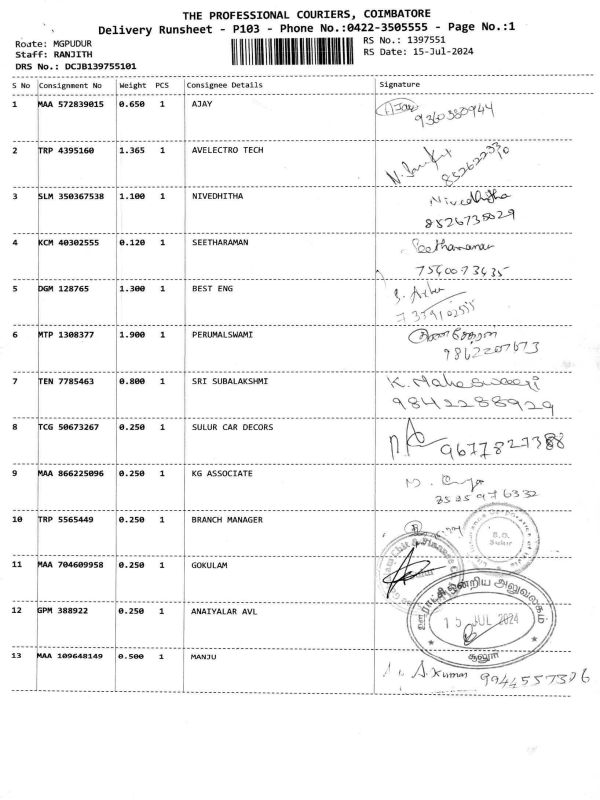 THE PROFESSIONAL COURIERS, COIMBATORE
Delivery Runsheet - P103 - Phone No.:0422-3505555 - Page No.:1
Roate: MGPUDUR
Staff: RANJITH
DRS No.: DCJB139755101
RS No.: 1397551
RS Date: 15-Jul-2024
S No Consignment No Weight PCS Consignee Details Signature
1 MAA 572839015 0.650 1 AJAY Ajay
9360380944
2 TRP 4395160 1.365 1 AVELECTRO TECH
3 SLM 350367538 1.100 1 NIVEDHITHA Nivedhitha
8526738029
4 KCM 40302555 0.120 1 SEETHARAMAN Seetharaman
7540073435
5 DGM 128765 1.300 1 BEST ENG
7339102555
6 MTP 1308377 1.900 1 PERUMALSWAMI
9862207673
7 TEN 7785463 0.800 1 SRI SUBALAKSHMI K. Maheswaari
9842288929
8 TCG 50673267 0.250 1 SULUR CAR DECORS
9677827388
9 MAA 866225096 0.250 1 KG ASSOCIATE
8525976332
10 TRP 5565449 0.250 1 BRANCH MANAGER
S.O.
Sulur
11 MAA 704609958 0.250 1 GOKULAM
12 GPM 388922 0.250 1 ANAIYALAR AVL
ஊராட்சி ஒன்றிய அலுவலகம்
15 JUL 2024
சூலூர்
13 MAA 109648149 0.500 1 MANJU A. Kumar 9944557306